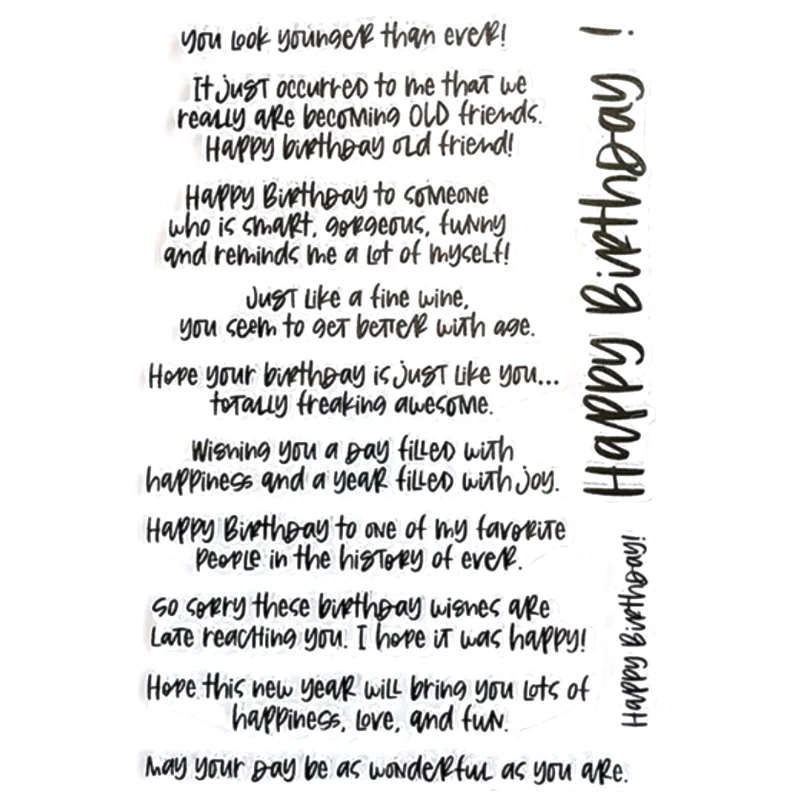 you look younger than ever!
It just occurred to me that we
really are becoming OLD friends.
Happy birthday old friend!
Happy Birthday to someone
who is smart, gorgeous, funny
and reminds me a lot of myself!
Just like a fine wine,
you seem to get better with age.
Hope your birthday is just like you...
totally freaking awesome.
Wishing you a day filled with
happiness and a year filled with joy.
Happy Birthday to one of my favorite
people in the history of ever.
so sorry these birthday wishes are
late reaching you. I hope it was happy!
Hope this new year will bring you lots of
happiness, love, and fun.
may your day be as wonderful as you are.
Happy Birthday !
Happy Birthday!